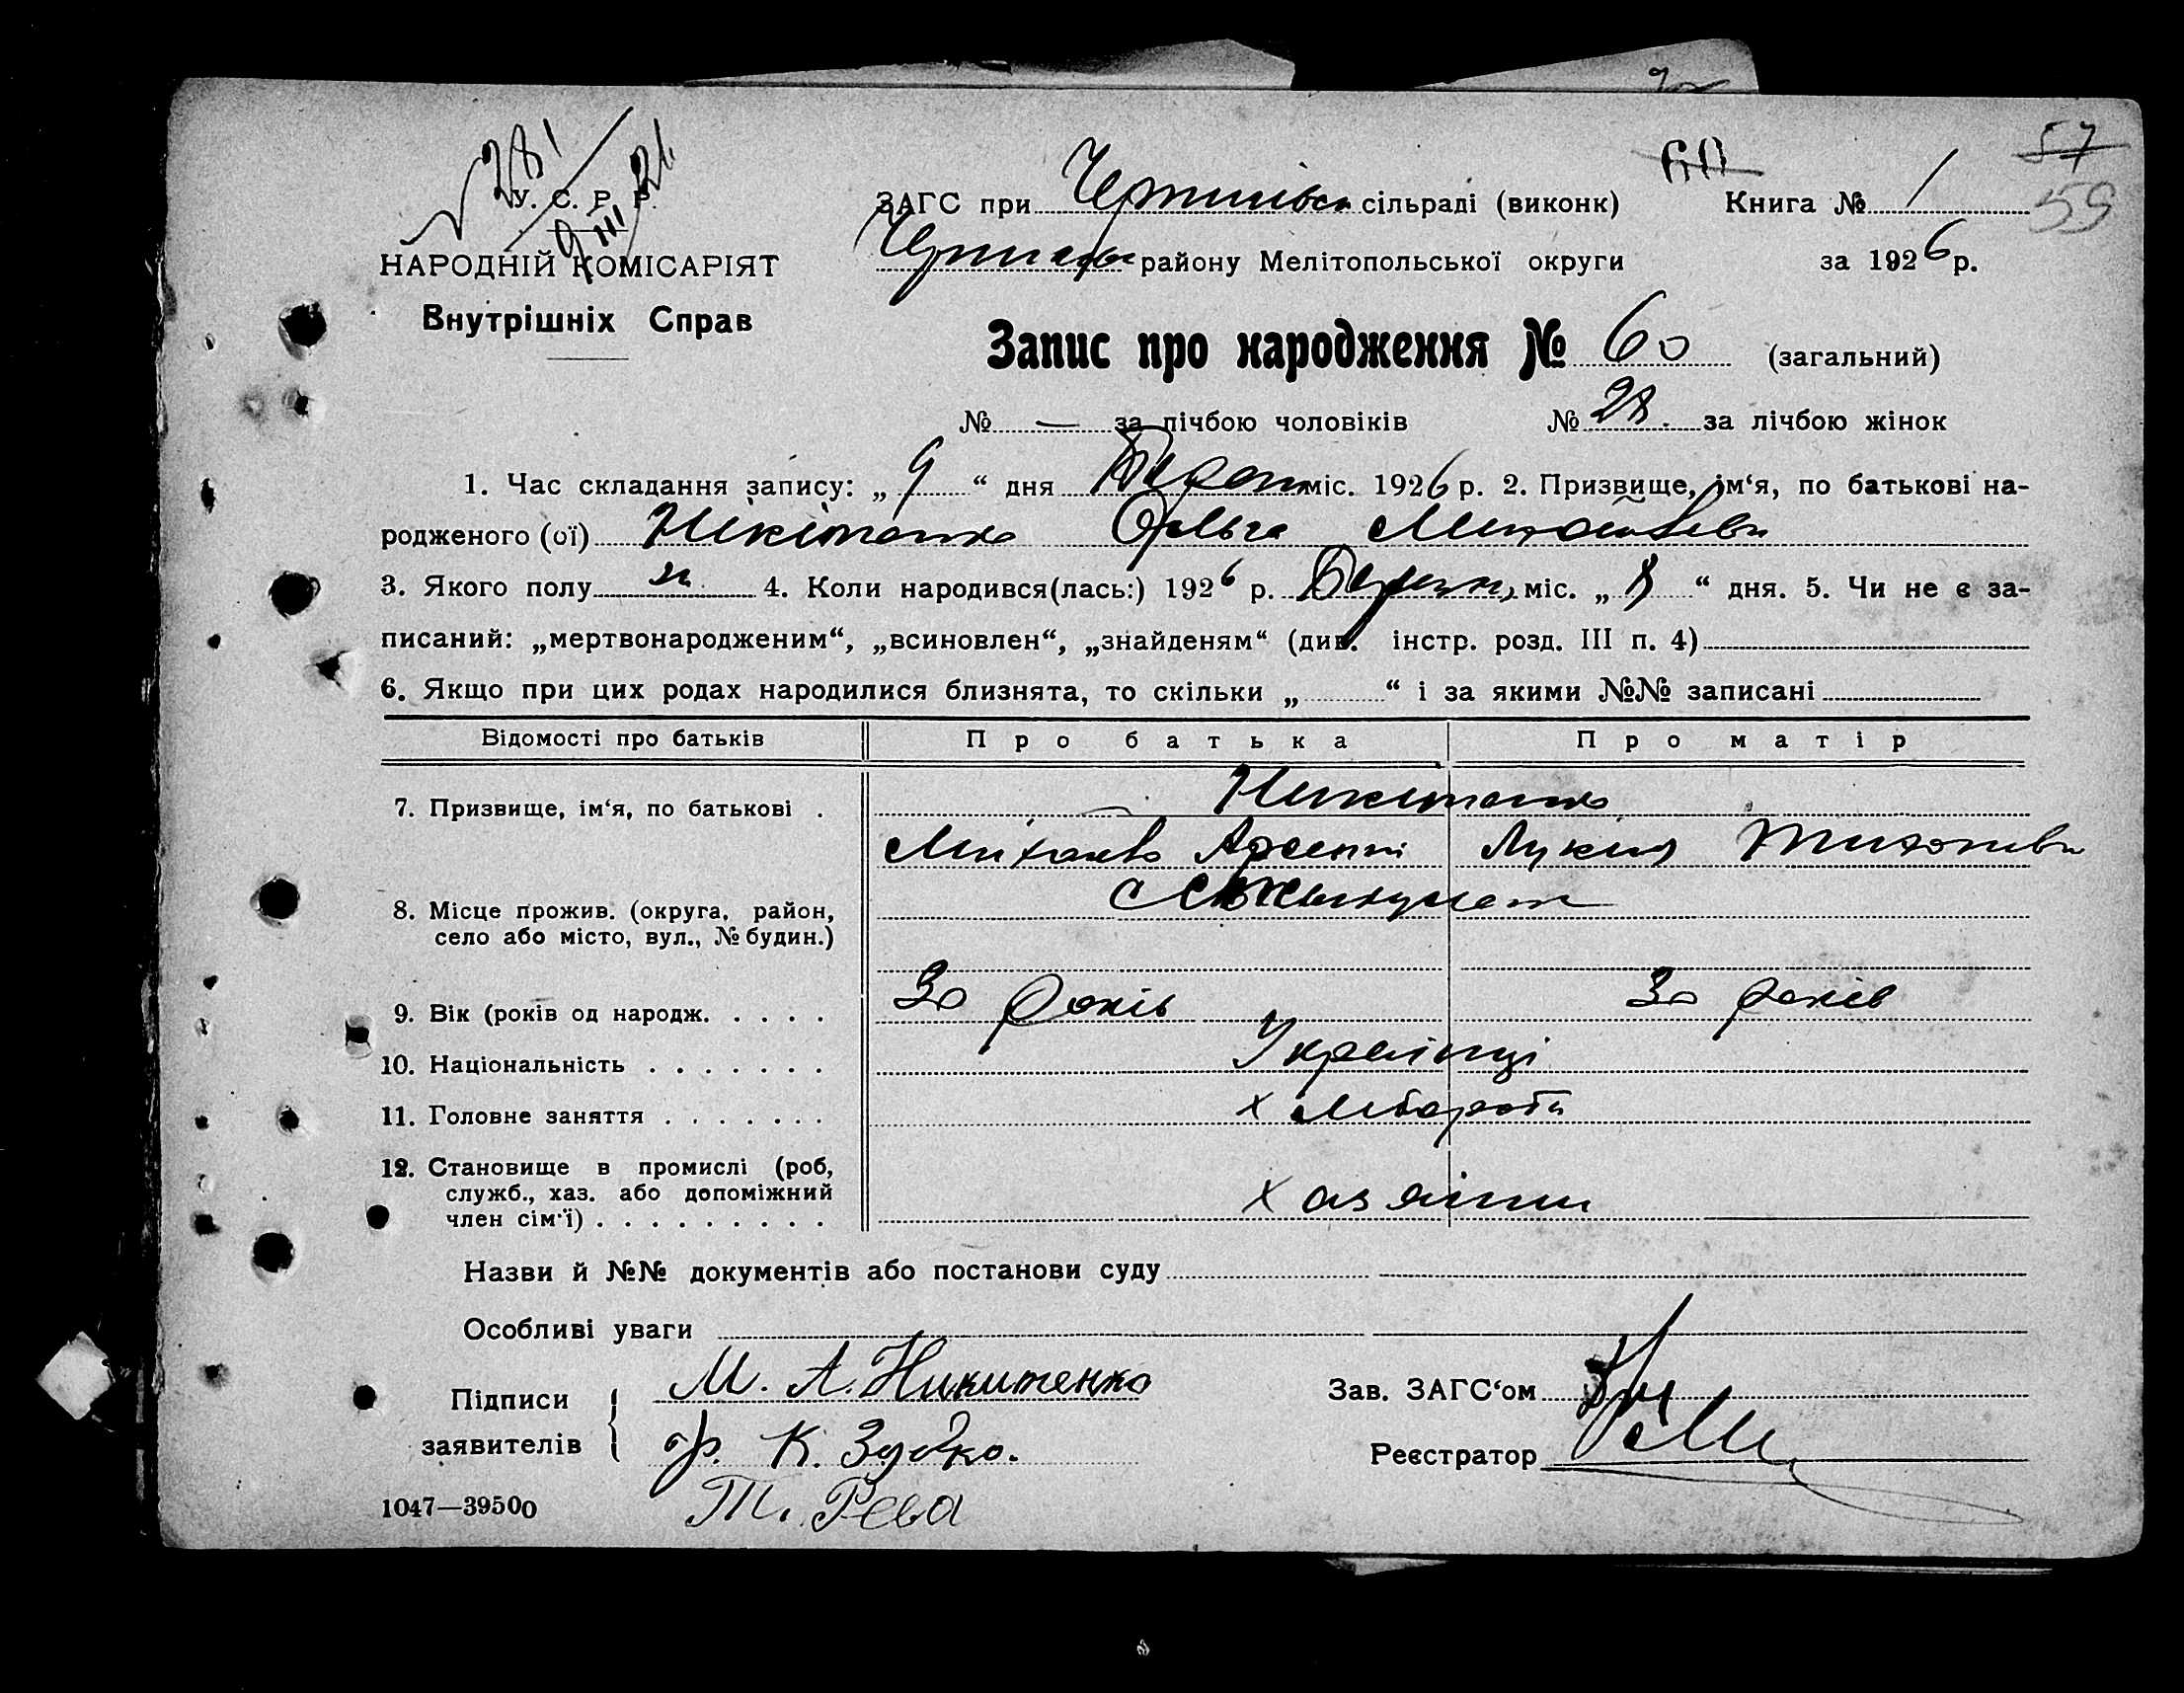 57
60
59
28/
У. С. Р. Р.
9/III 26
НАРОДНІЙ КОМІСАРІЯТ
Внутрішніх Справ
ЗАГС при сільраді (виконк) Книга № 1
району Мелітопольської округи за 1926 р.
Запис про народження № 60 (загальний)
№ — за лічбою чоловіків № 28. за лічбою жінок
1. Час складання запису: „ 9 “ дня міс. 1926 р. 2. Призвище, ім‘я, по батькові на-
родженого (ої) Нікітенко Ольга Михайлівн
3. Якого полу 4. Коли народився(лась:) 1926 р. міс. „ 8 “ дня. 5. Чи не є за-
писаний: „мертвонародженим“, „всиновлен“, „знайденям“ (див. інстр. розд. III п. 4)
6. Якщо при цих родах народилися близнята, то скільки „ “ і за якими №№ записані
Відомості про батьків Про батька Про матір
7. Призвище, ім‘я, по батькові . Никитенко
Арсент Лукія
8. Місце прожив. (округа, район,
село або місто, вул., № будин.)
9. Вік (років од народж. . . . . 30 років 30 років
10. Національність . . . . . . . Українці
11. Головне заняття . . . . . . . хлібороби
12. Становище в промислі (роб,
служб., хаз. або допоміжний
член сім‘ї) . . . . . . . . . хазяїни
Назви й №№ документів або постанови суду
Особливі уваги
Підписи М. А. Никитенко Зав. ЗАГС‘ом
заявителів гр. К. Зубко. Реєстратор
Т. Рева
1047—39500